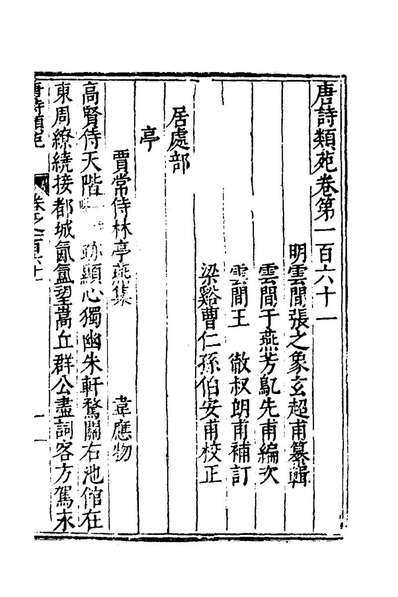 唐詩類苑卷第一百六十一
明雲間張之象玄超甫纂輯
雲間于燕芳馭先甫編次
雲間王徹叔朗甫補訂
梁谿曹仁孫伯安甫校正
居處部
亭
賈常侍林亭燕集 韋應物
高賢侍天階跡顯心獨幽朱軒騖關右池館在
東周繚繞接都城氤氳望嵩丘羣公盡詞客方駕永
唐詩類苑